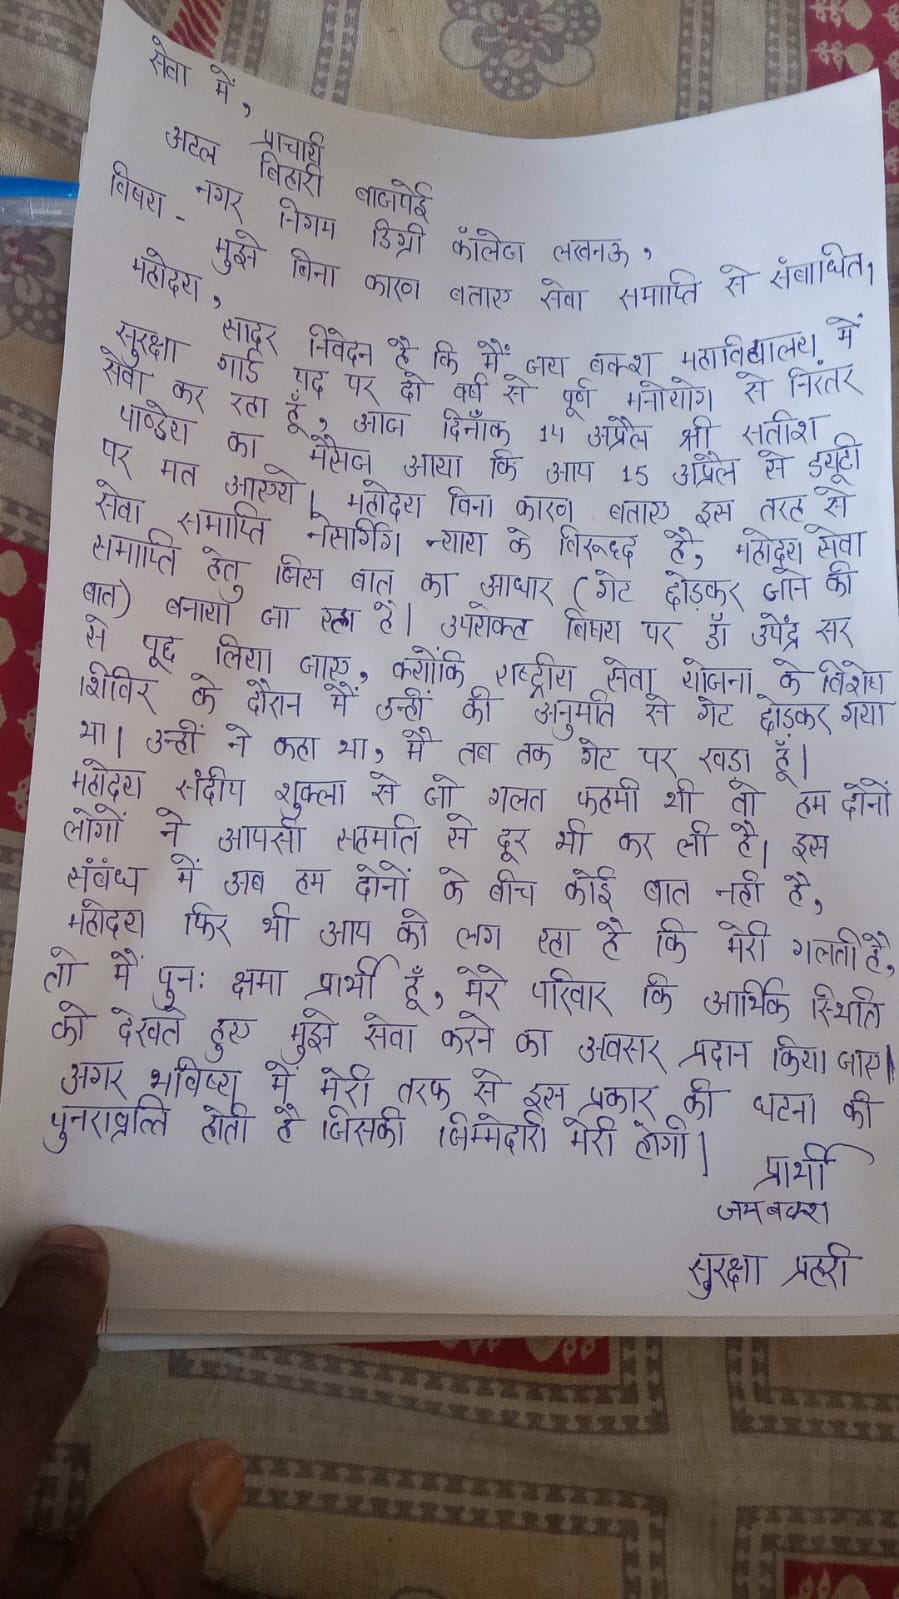 सेवा में,
प्राचार्य
अटल बिहारी बाजपेई
नगर निगम डिग्री कॉलेज लखनऊ,
विषय - मुझे बिना कारण बताए सेवा समाप्ति से संबाधित।
महोदय,
सादर निवेदन है कि मैं जय बक्श महाविद्यालय में
सुरक्षा गार्ड पद पर दो वर्ष से पूर्ण मनोयोग से निरंतर
सेवा कर रहा हूँ, आज दिनाँक 14 अप्रैल श्री सतीश
पाण्डेय का मैसेज आया कि आप 15 अप्रैल से ड्यूटी
पर मत आएये। महोदय बिना कारण बताए इस तरह से
सेवा समाप्ति नैसर्गिग न्याय के विरूध्द है, महोदय सेवा
समाप्ति हेतु जिस बात का आधार (गेट छोड़कर जाने की
बात) बनाया जा रहा है। उपरोक्ट बिषय पर डॉ उपेंद्र सर
से पूछ लिया जाए, क्योंकि राष्ट्रीय सेवा योजना के विशेष
शिविर के दौरान मैं उन्हीं की अनुमति से गेट छोड़कर गया
था। उन्हीं ने कहा था, मै तब तक गेट पर खड़ा हूँ।
महोदय संदीप शुक्ला से जो गलत फहमी थी वो हम दोनों
लोगों ने आपसी सहमति से दूर भी कर ली है। इस
संबंध में अब हम दोनों के बीच कोई बात नही है,
महोदय फिर भी आप को लग रहा है कि मेरी गलती है,
तो मैं पुनः क्षमा प्रार्थी हूँ, मेरे परिवार कि आर्थिक स्थिति
को देखते हुए मुझे सेवा करने का अवसर प्रदान किया जाए।
अगर भविष्य में मेरी तरफ से इस प्रकार की घटना की
पुनराव्रत्ति होती है जिसकी जिम्मेदारी मेरी होगी।
प्रार्थी
जयबक्श
सुरक्षा प्रहरी